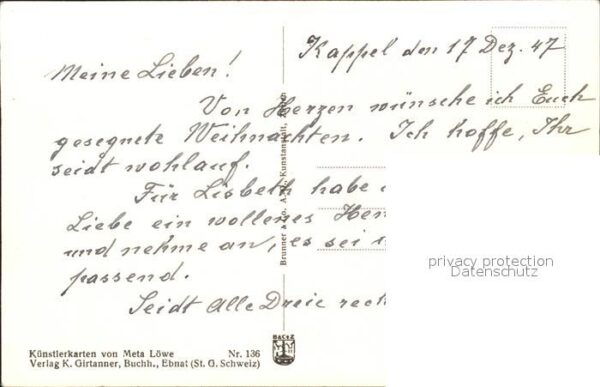 Kappel den 17 Dez. 47
Meine Lieben!
Von Herzen wünsche ich Euch
gesegnete Weihnachten. Ich hoffe, Ihr
seidt wohlauf.
Für Lisbeth habe
Liebe ein wollenes Hem
und nehme an, es sei
passend.
Seidt Alle Dreie rech
Brunner & Co. A.G., Kunstanstalt, Zürich
privacy protection
Datenschutz
Künstlerkarten von Meta Löwe Nr. 136
Verlag K. Girtanner, Buchh., Ebnat (St. G. Schweiz)